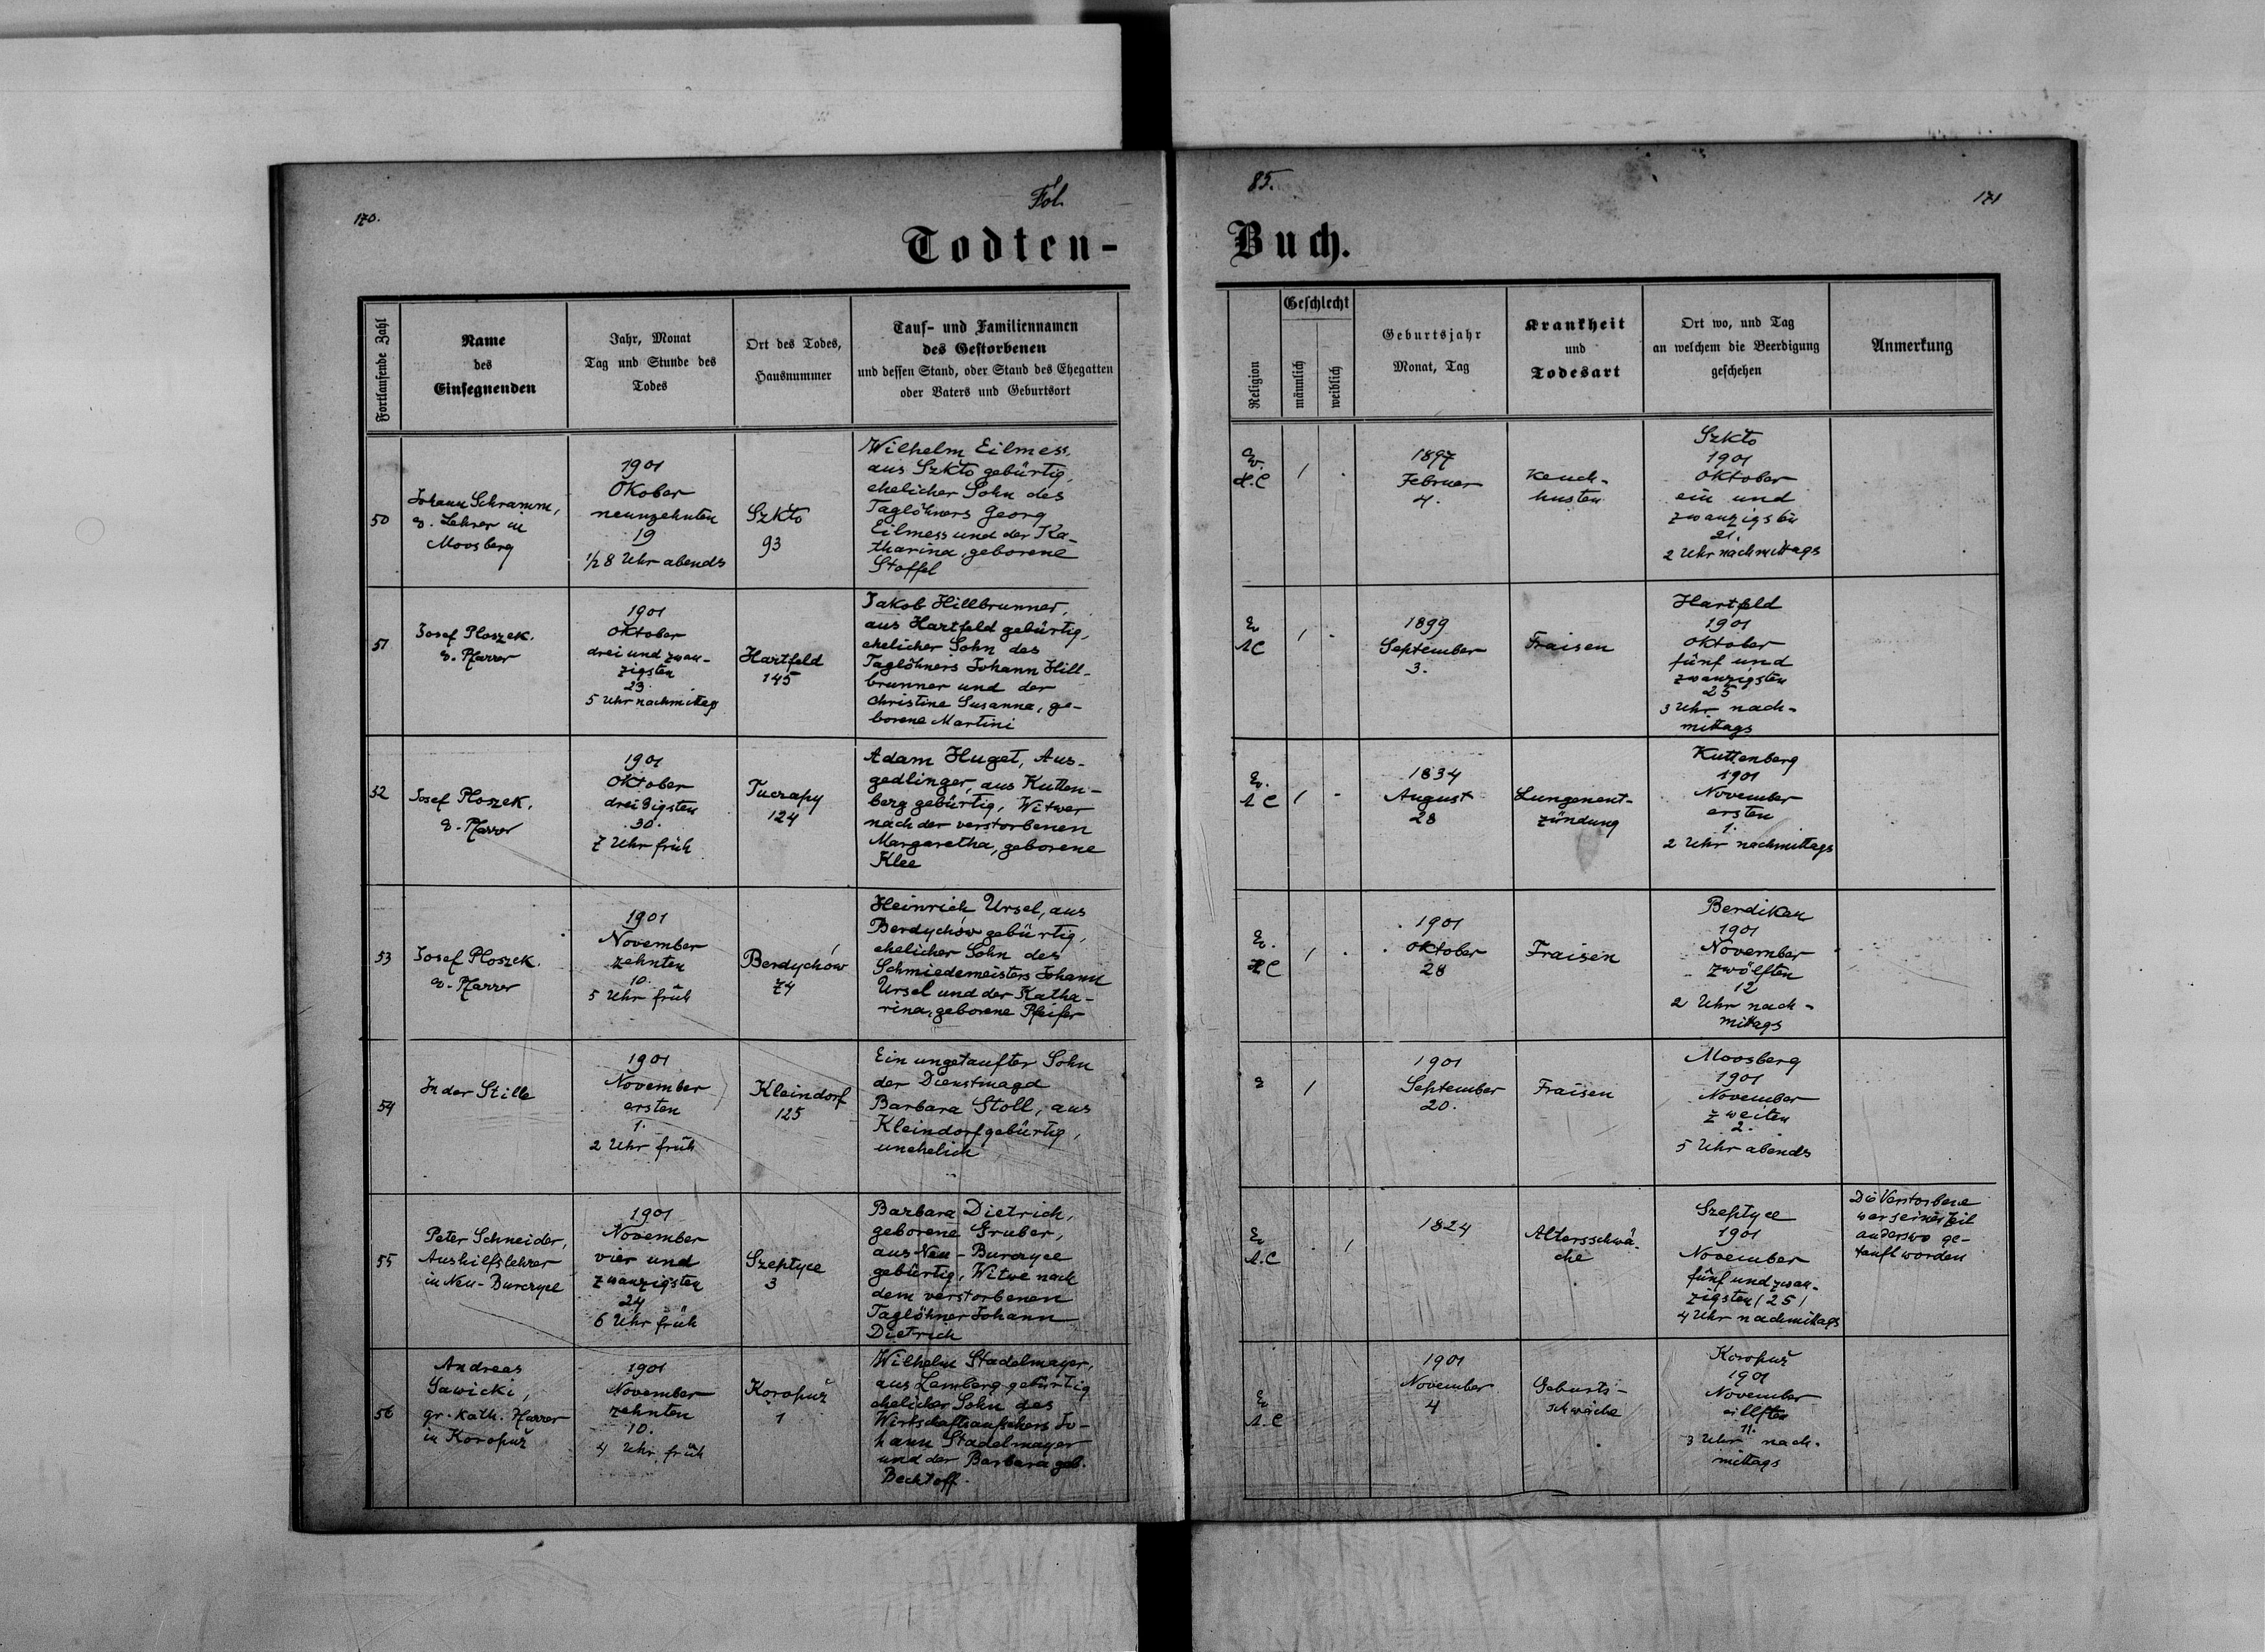 170.
Fol.
85.
171
Todten-
Buch.
Fortlaufende Zahl
Name
des
Einsegnenden
Jahr, Monat
Tag und Stunde des
Todes
Ort des Todes,
Hausnummer
Tauf- und Familiennamen
des Gestorbenen
und dessen Stand, oder Stand des Ehegatten
oder Vaters und Geburtsort
Religion
Geschlecht
männlich
weiblich
Geburtsjahr
Monat, Tag
Krankheit
und
Todesart
Ort wo, und Tag
an welchem die Beerdigung
geschehen
Anmerkung
50
Johann Schramm,
e. Lehrer in
Moosberg
1901
Okober
neunzehnten
19
1/2 8 Uhr abends
Szkto
93
Wilhelm Eilmess,
aus Szkto gebürtig,
ehelicher Sohn des
Taglöhners Georg
Eilmess und der Ka-
tharina, geborene
Stoffel
Ev.
H.C
1
1897
Februar
4.
Keuch-
husten
Szkto
1901
Oktober
ein und
zwanzigsten
21.
2 Uhr nachmittags
51
Josef Ploszek.
e. Pfarrer
1901
Oktober
drei und zwan-
zigsten
23.
5 Uhr nachmittag
Hartfeld
145
Jakob Hillbrunner,
aus Hartfeld gebürtig,
ehelicher Sohn des
Taglöhners Johann Hill-
brunner und der
Christine Susanna, ge-
borene Martini
Ev
A C
1
1899
September
3.
Fraisen
Hartfeld
1901
Oktober
fünf und
zwanzigsten
25
3 Uhr nach-
mittags
52
Josef Ploszek,
e. Pfarrer
1901
Oktober
dreißigsten
30.
7 Uhr früh
Tuczapy
124
Adam Huget, Aus-
gedlinger, aus Kutten-
berg gebürtig, Witwer
nach der verstorbenen
Margaretha, geborene
Klee
Ev.
A C
1
1834
August
28
Lungenent-
zündung
Kuttenberg
1901
November
ersten
1.
2 Uhr nachmittags
53
Josef Ploszek.
e. Pfarrer
1901
November
zehnten
10.
5 Uhr früh
Berdychów
74
Heinrich Ursel, aus
Berdychów gebürtig,
ehelicher Sohn des
Schmiedemeisters Johann
Ursel und der Katha-
rina, geborene Pfeifer
Ev.
H C
1
1901
Oktober
28
Fraisen
Berdikau
1901
November
zwölften
12
2 Uhr nach-
mittags
54
In der Stille
1901
November
ersten
1.
2 Uhr früh
Kleindorf
125
Ein ungetaufter Sohn
der Dienstmagd
Barbara Stoll, aus
Kleindorf gebürtig,
unehelich
1
1901
September
20.
Fraisen
Moosberg
1901
November
zweiten
2.
5 Uhr abends
55
Peter Schneider,
Aushilfslehrer
in Neu-Burczyce
1901
November
vier und
zwanzigsten
24
6 Uhr früh
Szeptyce
3
Barbara Dietrich,
geborene Gruber,
aus Neu-Burczyce
gebürtig, Witwe nach
dem verstorbenen
Taglöhner Johann
Dietrich
Ev
A.C
1
1824
Altersschwä-
che
Szeptyce
1901
November
fünf und zwan-
zigsten (25)
4 Uhr nachmittags
Die Verstorbene
war seiner Zeit
anderswo ge-
tauft worden
56
Andreas
Sawicki,
gr. Kath. Pfarrer
in Koropuž
1901
November
zehnten
10.
4 Uhr früh
Koropuž
1
Wilhelm Stadelmayer,
aus Lemberg gebürtig
ehelicher Sohn des
Wirtschaftsaufsehers Jo-
hann Stadelmayer
und der Barbara geb.
Bechtoff.
Ev
A.C
1901
November
4
Geburts-
schwäche
Koropuž
1901
November
eilften
11.
3 Uhr nach-
mittags